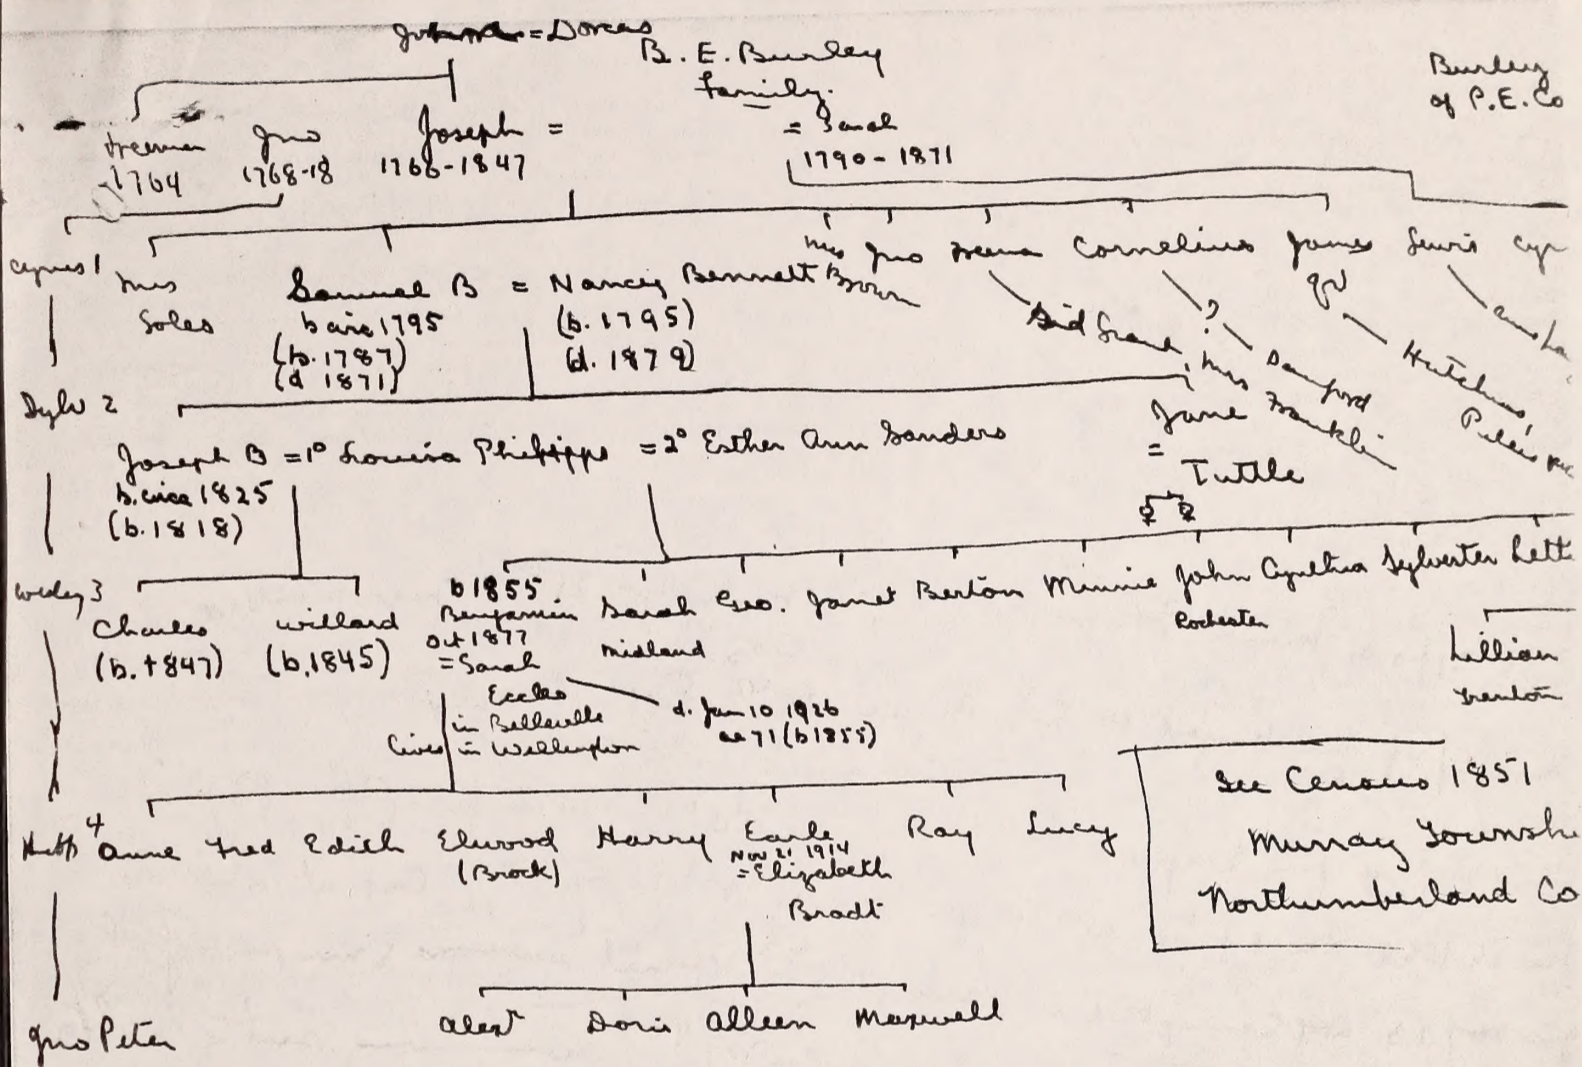 = Dorcas
B. E. Burley
Family.
Burley
of P.E. Co
Freeman
1764
Jno
1768-18
Joseph =
1766-1847
= Sarah
1790-1871
Cyrus 1
Mrs
Soles
Samuel B = Nancy Bennett
b circ 1795
(b. 1787)
(d 1871)
(b. 1795)
(d. 1879)
Mrs
Brown
Jno
Cornelius
James
Lewis
qv
?
Sid
Mrs
Franklin
Danford
Hutchins,
Sylv 2
Joseph B = 1° Louisa Phillipps = 2° Esther Ann Sanders
b. circa 1825
(b. 1818)
Jane
=
Tuttle
♀ ♀
Wesley 3
Charles
(b. 1847)
Willard
(b. 1845)
b 1855
Benjamin
Oct 1877
= Sarah
Eccles
in Belleville
lives in Wellington
d. Jan 10 1926
ae 71 (b 1855)
Sarah
Midland
Geo.
Janet
Berton
Minnie
John
Rochester
Cynthia
Sylvester
Lett
Lillian
Trenton
See Census 1851
Murray Townsh
Northumberland Co
4
Anne Fred Edith Elwood Harry Earle Ray Lucy
(Brock)
Nov 21 1914
= Elizabeth
Bradt
Jno Peter
Alext Doris Alleen Maxwell